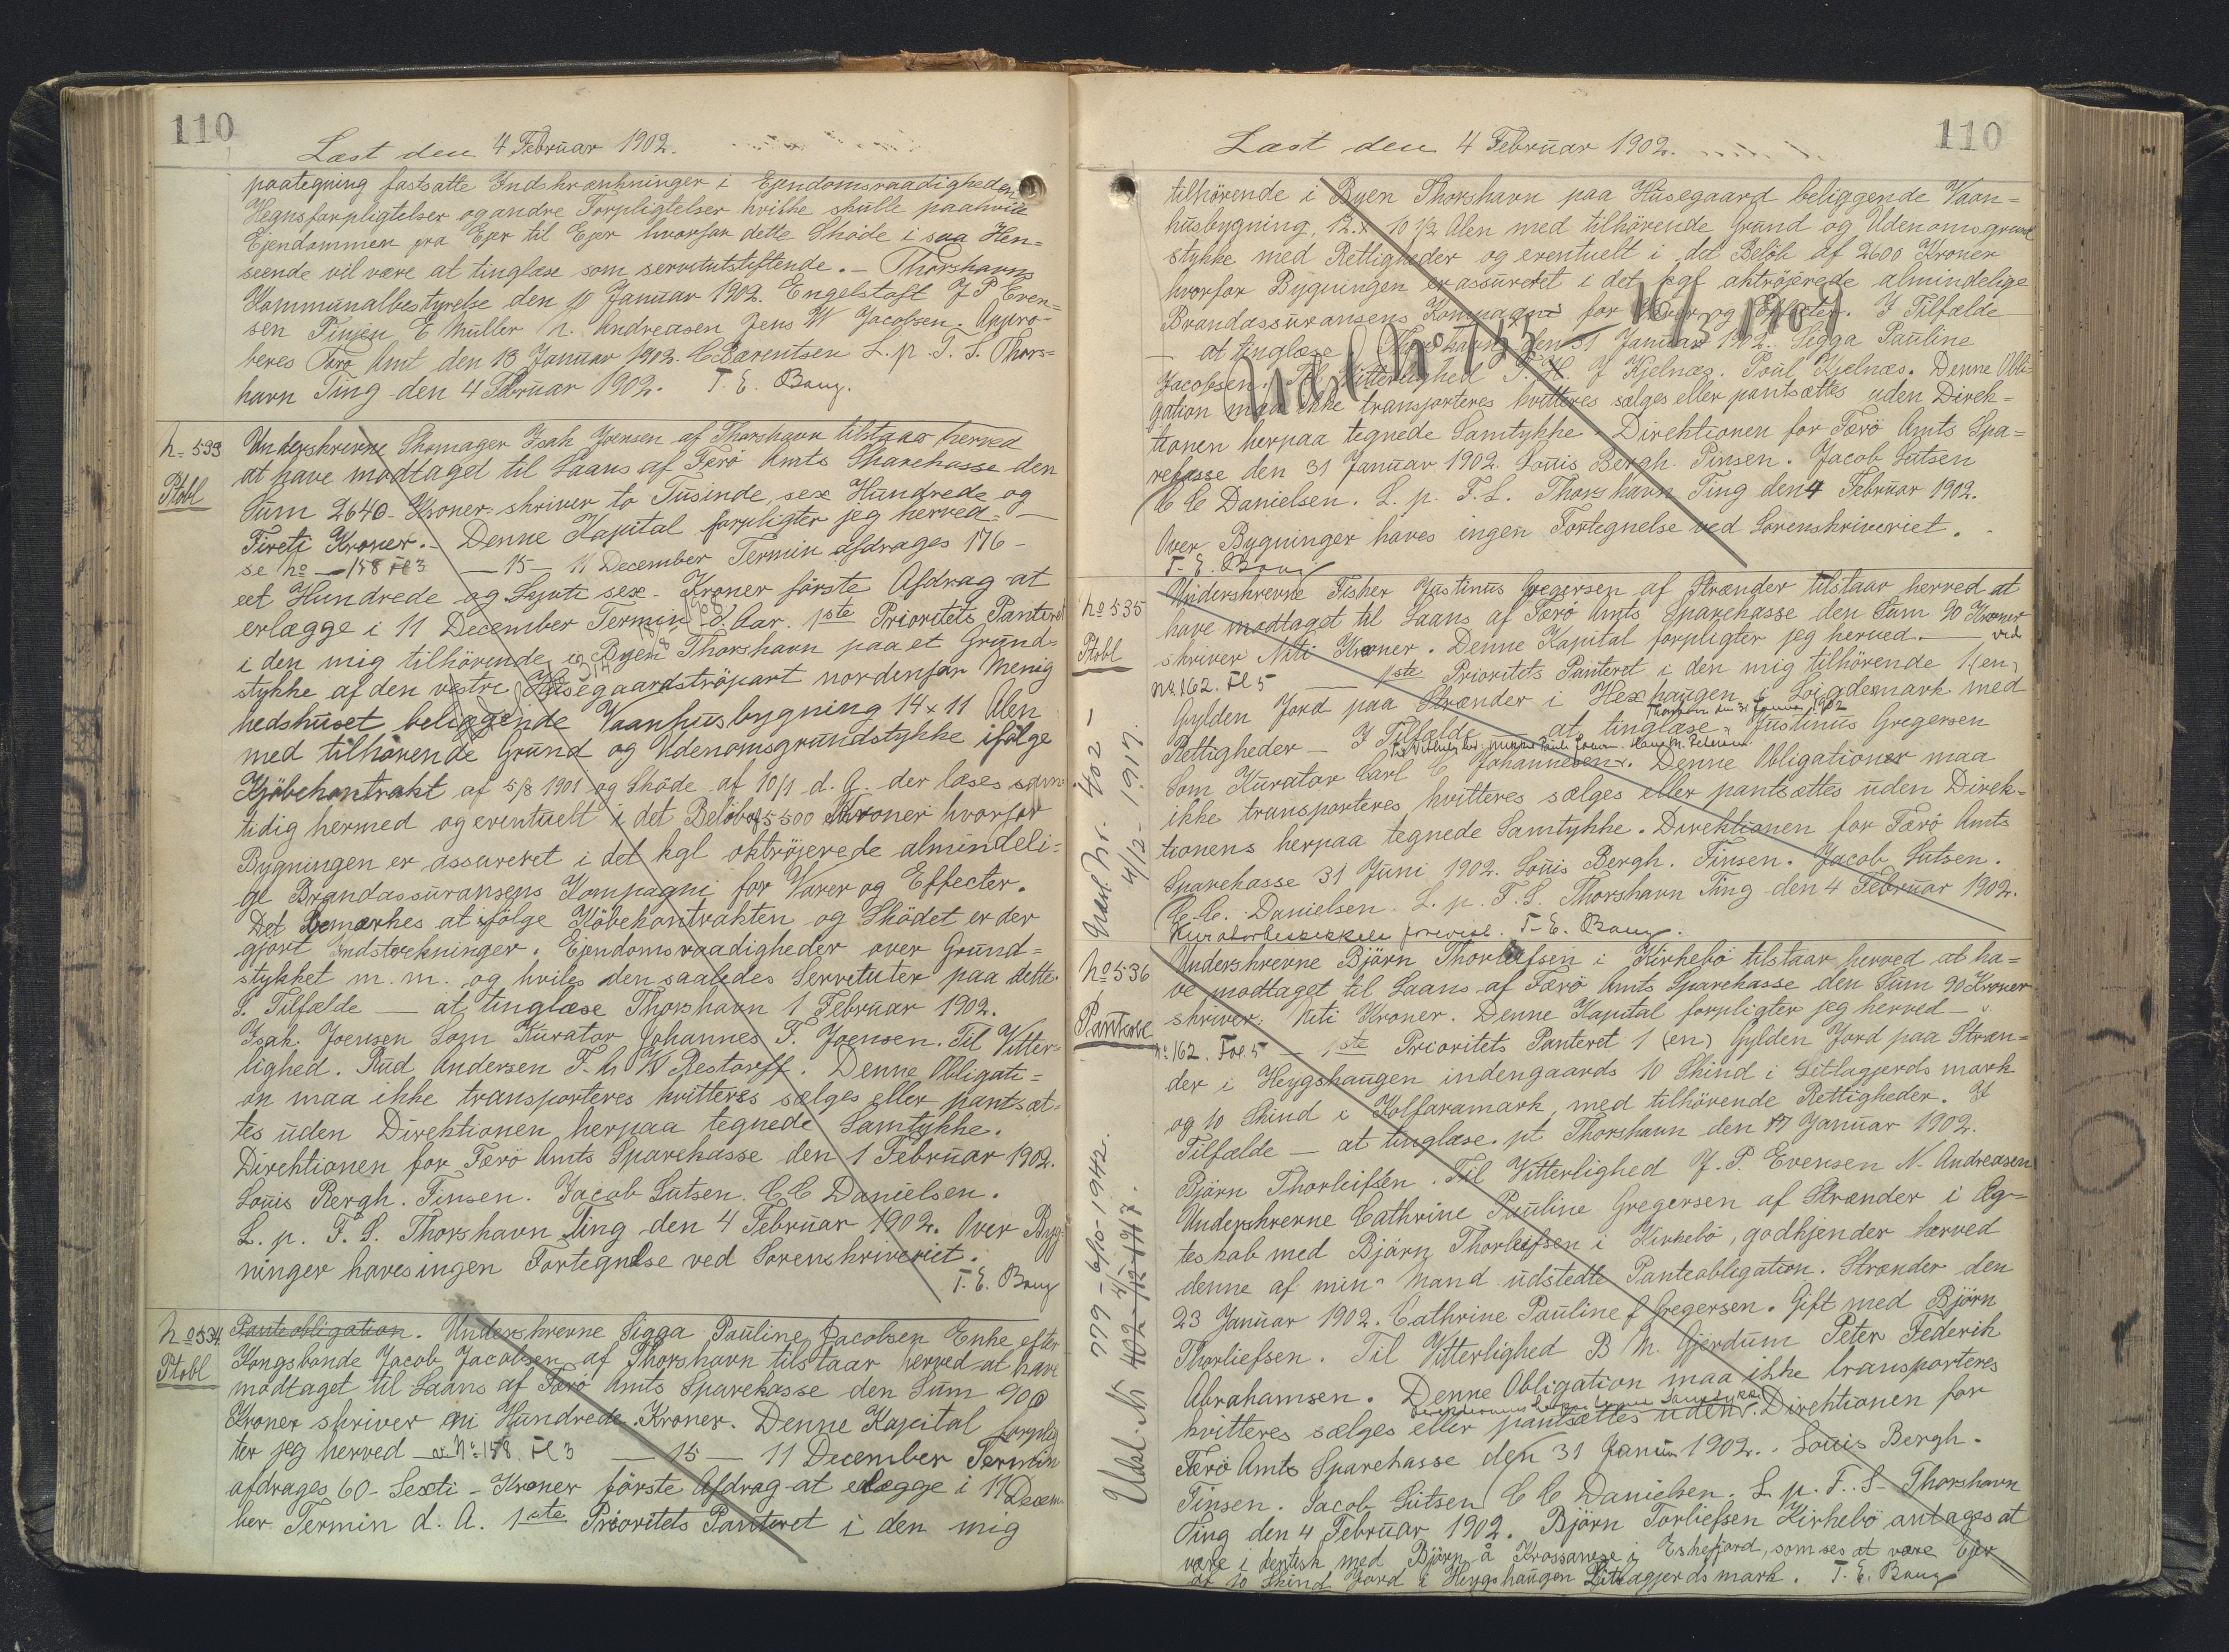 110
Læst den 4 Februar 1902.
paategning fastsatte Indskrænkninger i Ejendomsraadigheden
Hegnsforpligtelser og andre Forpligtelser hvilke skulle paahvile
Ejendommen fra Ejer til Ejer hvorfor dette Skøde i saa Hen=
seende vil være at tinglæse som servitutstiftende. – Thorshavns
Kommunalbestyrelse den 10 Januar 1902. Engelstoft J P Even=
sen Finsen E Müller N. Andreasen Jens W Jacobsen. Appro-
beres Færö Amt den 13 Januar 1902. C Bærentsen L. p. T. S. Thors=
havn Ting den 4 Februar 1902. T. E. Bang.
No 533
Ptobl
Underskrevne Skomager Isak Joensen af Thorshavn tilstaar herved
at have modtaget til Laans af Færö Amts Sparekasse den
Sum 2640 Kroner skriver to Tusinde sex Hundrede og
Fireti Kroner. – Denne Kapital forpligter jeg herved –
se No – 158 Fol 3 – 15 – 11 December Termin afdrages 176 –
eet Hundrede og Sytti sex – Kroner förste Afdrag at
erlægge i 11 December Termin d. Aar. 1ste Prioritets Panteret
i den mig tilhörende i Byen Thorshavn paa et Grund-
stykke af den vestre Husegaardströpart nordenfor Menig
hedshuset beliggende Vaanhusbygning 14 x 11 Alen
med tilhörende Grund og Udenomsgrundstykke ifölge
Kjöbekontrakt af 5/8 1901 og Sköde af 10/1 d. A. der læses sam
tidig hermed og eventuelt i det Belöb af 5500 Kroner hvorfor
Bygningen er assureret i det kgl oktröjerede almindeli=
ge Brandassuransens Kompagni for Varer og Effecter.
Det bemærkes at ifölge Köbekontrakten og Sködet er der
gjort Indskrænkninger i Ejendomsraadigheder over Grund=
stykket m. m. og hviles den saaledes Servituter paa dette.
I. Tilfælde — at tinglæse Thorshavn 1 Februar 1902.
Isak Joensen Som Kurator Johannes F. Joensen. Til Vitter=
lighed. Rud Andersen F. W Restorff. Denne Obligati=
on maa ikke transporteres kvitteres sælges eller pantsæt=
tes uden Direktionen herpaa tegnede Samtykke.
Direktionen for Færö Amts Sparekasse den 1 Februar 1902.
Louis Bergh. Finsen. Jacob Lutsen. C C Danielsen.
L. p. F. S. Thorshavn Ting den 4 Februar 1902. Over Byg=
ninger haves ingen Fortegnelse ved Sorenskriveriet.
T. E. Bang
No 534
Ptobl
Panteobligation. Underskrevne Sigga Pauline Jacobsen Enke efter
Kongsbonde Jacob Jacobsen af Thorshavn tilstaar herved at have
modtaget til Laans af Færö Amts Sparekasse den Sum 900
Kroner skriver ni Hundrede Kroner. Denne Kapital forplig
ter jeg herved – No 158. Fol 3 – 15 – 11 December Termin
afdrages 60 – Sexti – Kroner förste Afdrag at erlægge i 11 Decem
ber Termin d. A. 1ste Prioritets Panteret i den mig
110
Læst den 4 Februar 1902.
tilhörende i Byen Thorshavn paa Husegaard beliggende Vaan=
husbygning, 12 x 10 1/2 Alen med tilhörende Grund og Udenomsgrund
stykke med Rettigheder og eventuelt i det Belöb af 2600 Kroner
hvorfor Bygningen er assureret i det kgl oktröjerede almindelige
Brandassuransens Kompagni for Varer og Effecter. I Tilfælde
– at tinglæse. Thorshavn den 31 Januar 1902. Sigga Pauline
Jacobsen. Til Vitterlighed J Kjelnæs. Poul Kjelnæs. Denne Obli=
gation maa ikke transporteres kvitteres sælges eller pantsættes uden Direk=
tionen herpaa tegnede Samtykke. Direktionen for Færö Amts Spa=
rekasse den 31 Januar 1902. Louis Bergh. Finsen. Jacob Lutsen
C C Danielsen. L. p. F. S. Thorshavn Ting den 4 Februar 1902.
Over Bygninger haves ingen Fortegnelse ved Sorenskriveriet.
T. E. Bang
No 535
Ptobl
Underskrevne Fisker Justinus Gregersen af Strænder tilstaar herved at
have modtaget til Laans af Færö Amts Sparekasse den Sum 90 Kroner
skriver Niti Kroner. Denne Kapital forpligter jeg herved. — vid
No 162. Fol 5 — 1ste Prioritets Panteret i den mig tilhörende 1 (en)
Gylden Jord paa Strænder i Hexhaugen med
Thorshavn den 31 Januar 1902
Rettigheder – I Tilfælde – at tinglæse. Justinus Gregersen
Som Kurator Carl C Johannesen. Denne Obligationer maa
ikke transporteres kvitteres sælges eller pantsættes uden Direk=
tionens herpaa tegnede Samtykke. Direktionen for Færö Amts
Sparekasse 31 Juni 1902. Louis Bergh. Finsen. Jacob Lutsen.
C. C. Danielsen. L. p. F. S. Thorshavn Ting den 4 Februar 1902.
Kuratorbeskikkelse forevist. T. E. Bang.
Udsl. Nr. 402 –
4/12 – 1917.
No 536
Panteobl
Underskrevne Björn Thorleifsen i Kirkebö tilstaar herved at ha=
ve modtaget til Laans af Færö Amts Sparekasse den Sum 90 Kroner
skriver: Niti Kroner. Denne Kapital forpligter jeg herved –
No 162. Fol 5 – 1ste Prioritets Panteret 1 (en) Gylden Jord paa Stræn=
der i Heygshaugen indengaards 10 Skind i Litlagjerds mark
og 10 Skind i Kolfaramark, med tilhörende Rettigheder. I
Tilfælde – at tinglæse. pt Thorshavn den 17 Januar 1902.
Björn Thorleifsen. Til Vitterlighed J. P. Evensen N. Andreasen
Underskrevne Cathrine Pauline Gregersen af Strænder i Æg=
teskab med Björn Thorleifsen i Kirkebö, godkjender herved
denne af min Mand udstedte Panteobligation. Strænder den
23 Januar 1902. Cathrine Pauline f Gregersen. Gift med Björn
Thorliefsen. Til Vitterlighed B M. Gjerdum Peter Federik
Abrahamsen. Denne Obligation maa ikke transporteres
kvitteres sælges eller pantsættes uden Direktionen for
Færö Amts Sparekasse den 31 Januar 1902. Louis Bergh.
Finsen. Jacob Lutsen C C Danielsen. L. p. F. S. Thorshavn
Ting den 4 Februar 1902. Björn Torliefsen Kirkebö antages at
være identisk med Björn å Krossanese i Eskefjord, som ses at være Ejer
af 10 Skind Jord i Heygshaugen Litlagjerds mark. T. E. Bang
Udsl. Nr 779 – 6/10 – 1942.
402 – 4/12 1917.